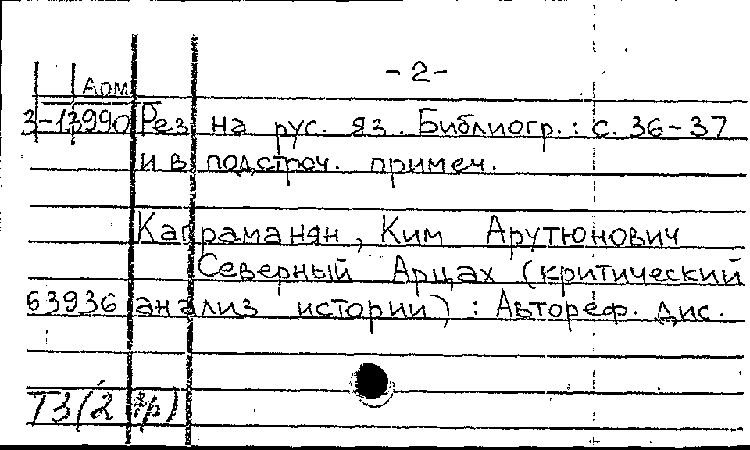 - 2 -
Арм
3-13990 Рез на рус. яз. Библиогр.: с. 36-37
и в подстроч. примеч.
Каграманян, Ким Арутюнович
Северный Арцах (критический
63936 анализ истории) : Автореф. дис.
Т3(2